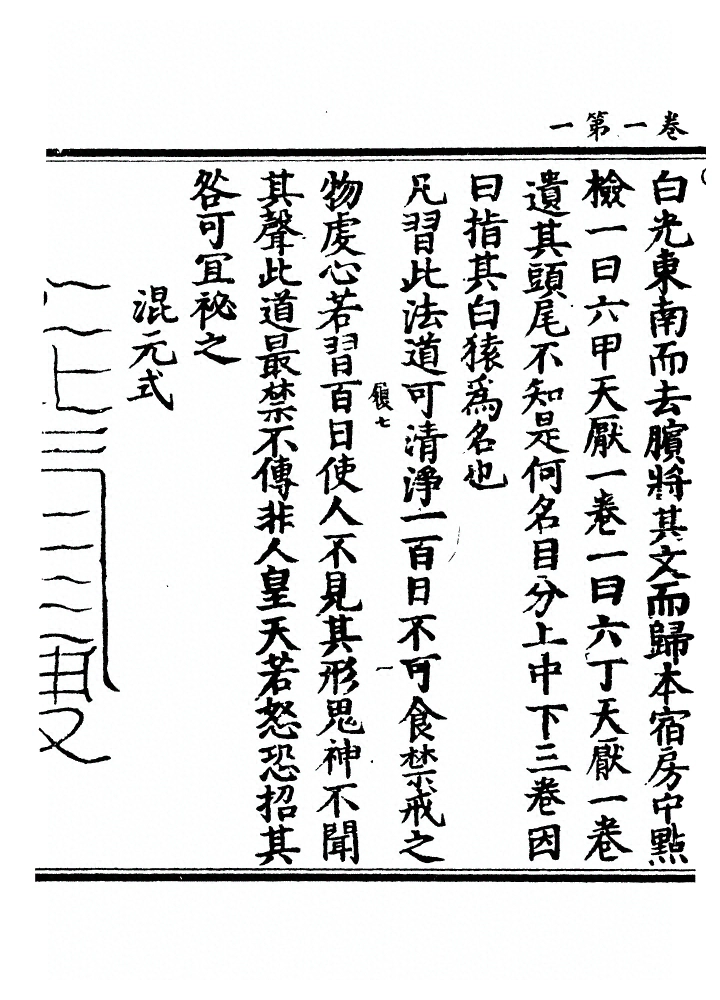 卷一第一
白光東南而去臏將其文而歸本宿房中點
檢一曰六甲天厭一卷一曰六丁天厭一卷
遺其頭尾不知是何名目分上中下三卷因
曰指其白猿爲名也
凡習此法道可清淨一百日不可食禁戒之
履七
物虔心若習百日使人不見其形鬼神不聞
其聲此道最禁不傳非人皇天若怒恐招其
咎可冝祕之
混元式